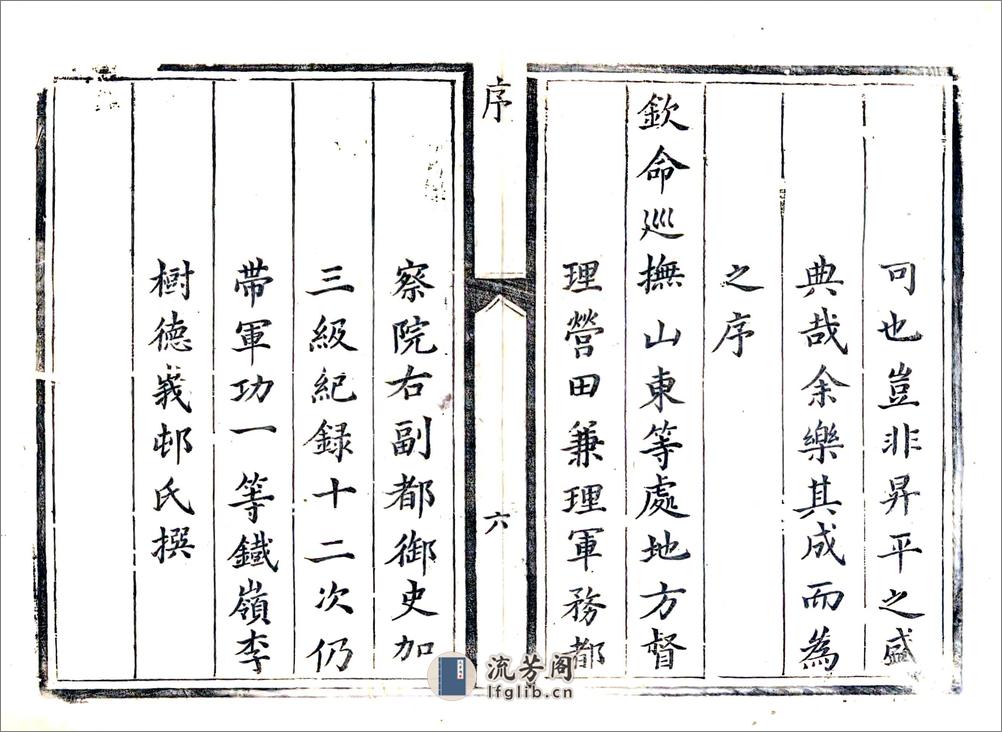 可也豈非昇平之盛
典哉余樂其成而為
之序
欽命巡撫山東等處地方督
理營田兼理軍務都
序
六
察院右副都御史加
三級紀録十二次仍
帶軍功一等鐵嶺李
樹德義邨氏撰
流芳阁
lfglib.cn